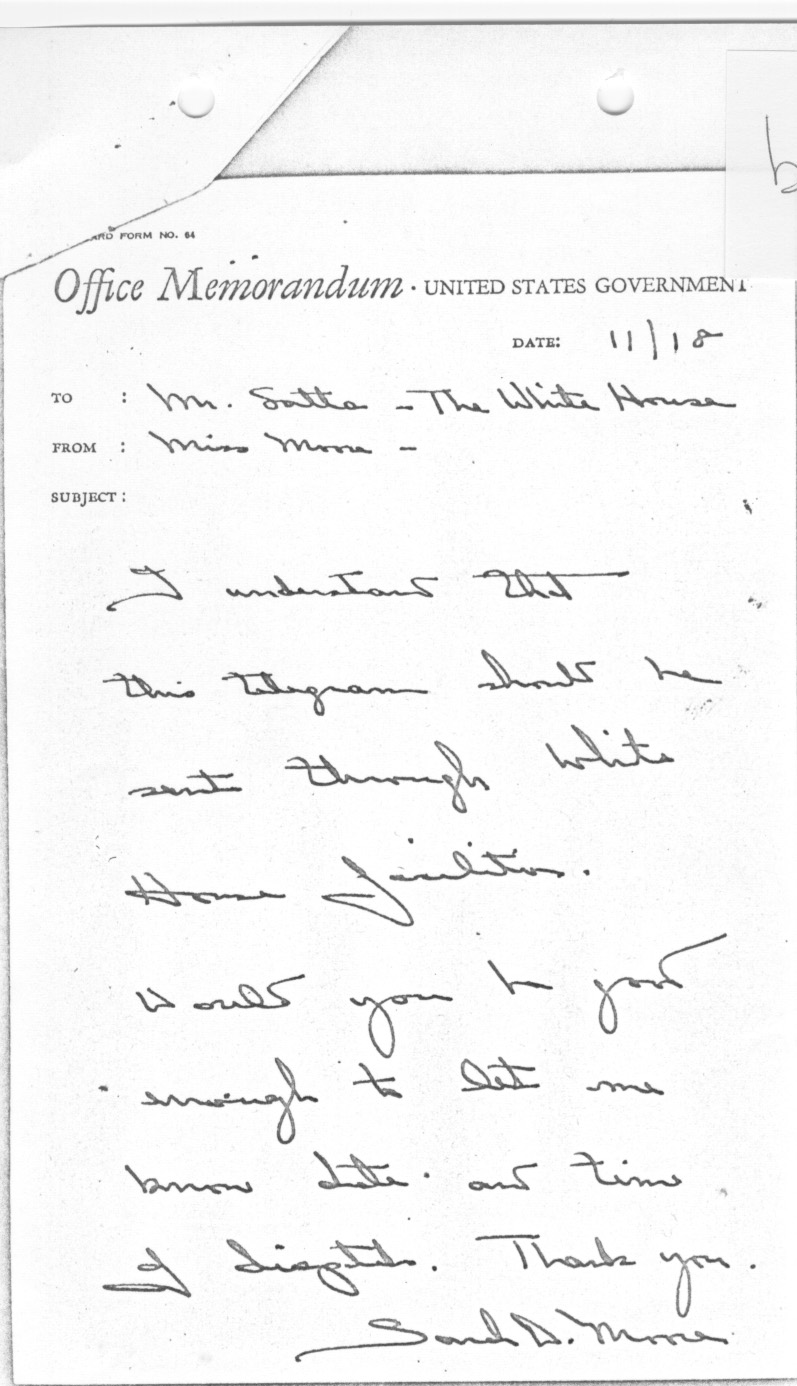 b
ARD FORM NO. 64
Office Memorandum · UNITED STATES GOVERNMENT
DATE: 11/18
TO : Mr. - The White House
FROM : Miss Moore -
SUBJECT :
I understand that
this telegram should be
sent through White
House facilities.
Would you be good
enough to let me
know date and time
of dispatch. Thank you.
Sarah D. Moore